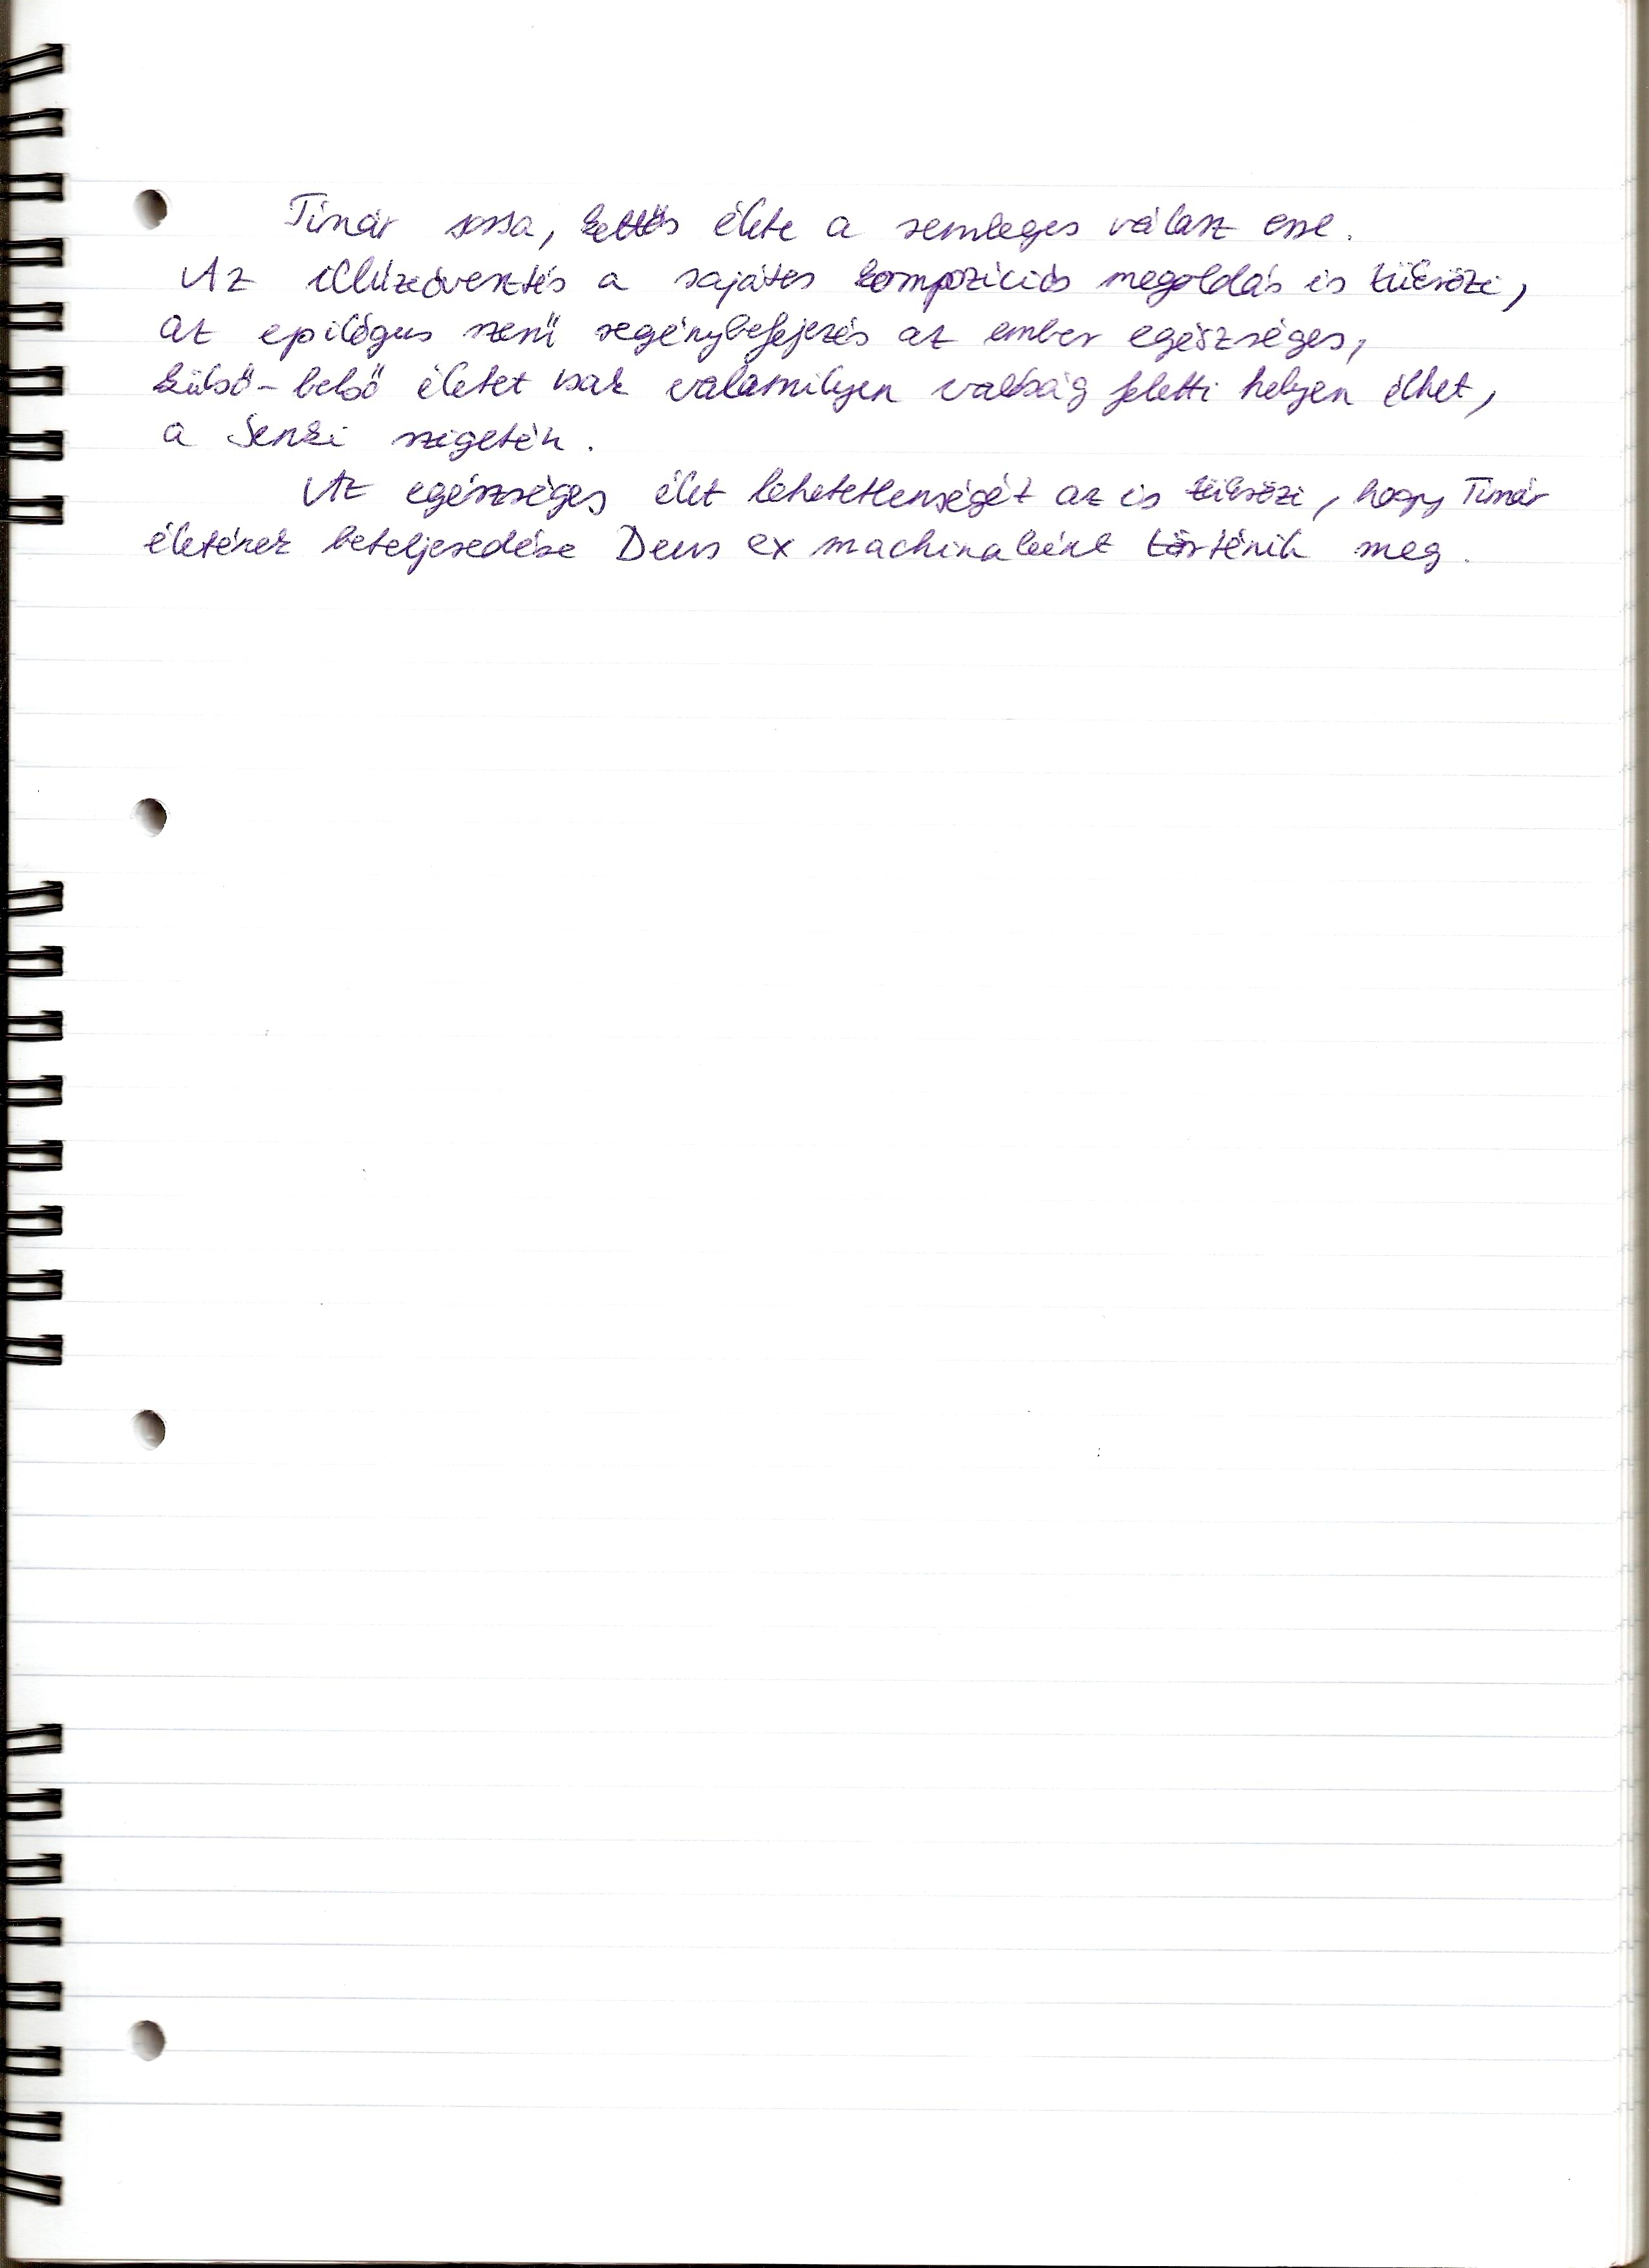 Timár sorsa, kettős élete a semleges válasz erre.
Az illúzióvesztés a sajátos kompozíciós megoldás is tükrözi,
az epilógus szerű regénybefejezés az ember egészséges,
külső-belső életet csak valamilyen valóság feletti helyen élhet,
a Senki szigetén.
Az egészséges élet lehetetlenségét az is tükrözi, hogy Timár
életének beteljesedése Deus ex machinaként történik meg.